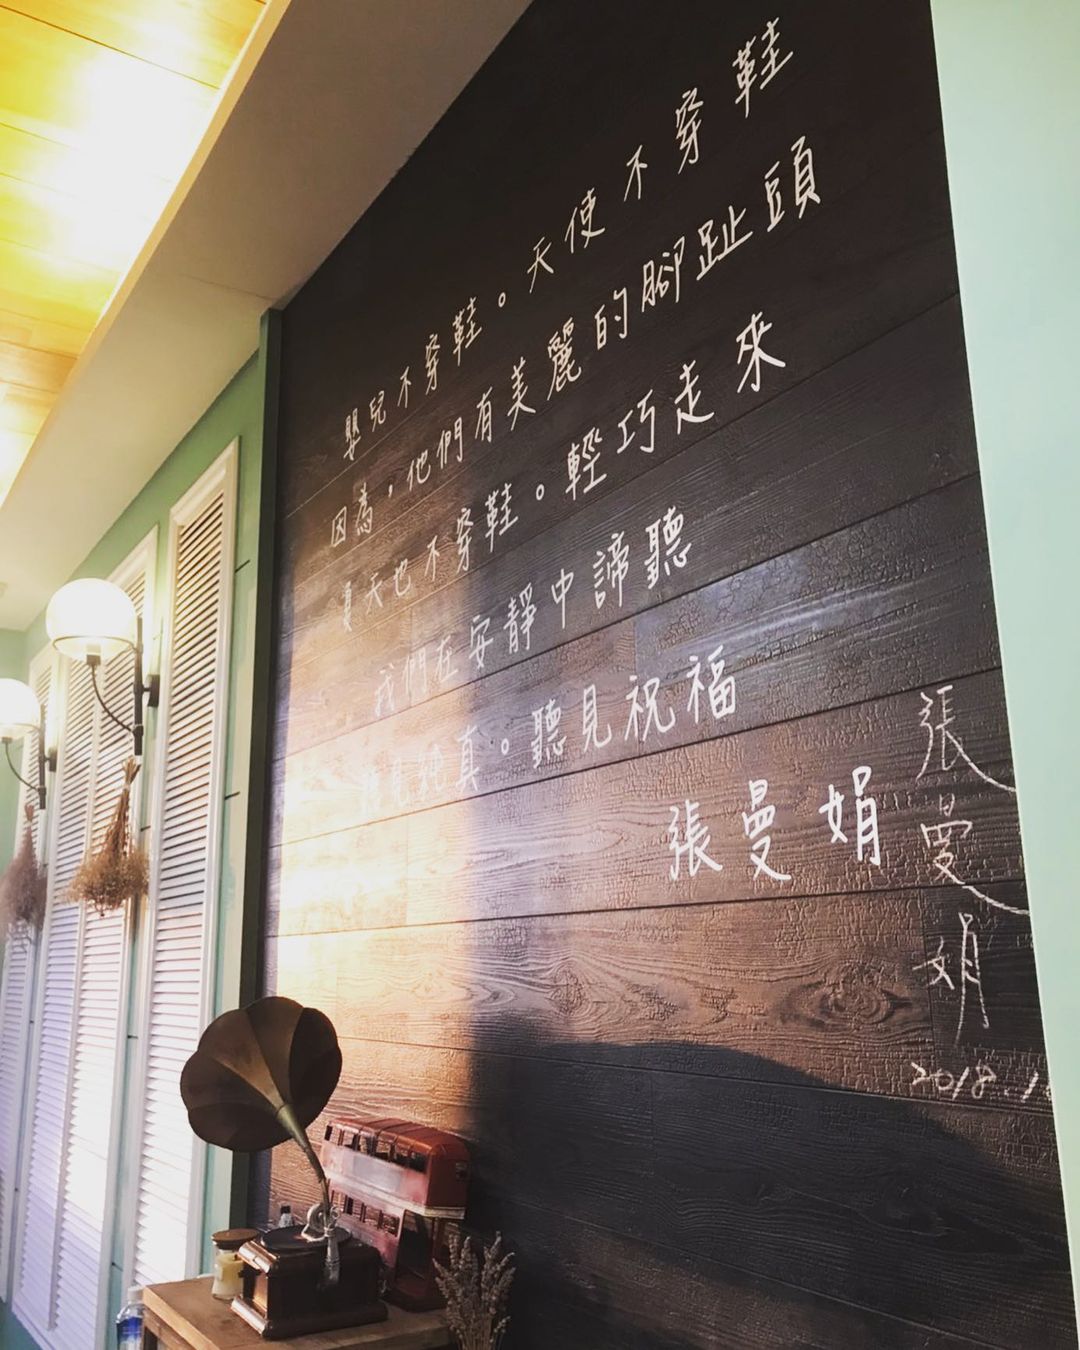 嬰兒不穿鞋。天使不穿鞋
因為，他們有美麗的腳趾頭
夏天也不穿鞋。輕巧走來
我們在安靜中諦聽
聽見純真。聽見祝福
張曼娟
張曼娟
2018.1